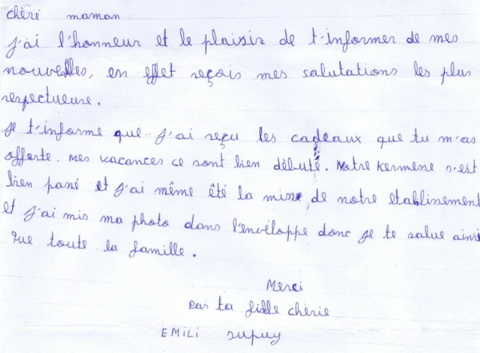 chèri maman
j'ai l'honneur et le plaisir de t'informer de mes
nouvelles, en effet reçois mes salutations les plus
respectueuse.
Je t'informe que j'ai reçu les cadeaux que tu m'as
offerte. Mes vacances ce sont bien débuté. Notre kermesse s'est
bien passé et j'ai même été la miss de notre etablissement
et j'ai mis ma photo dans l'envéloppe donc je te salue ainsi
que toute la famille.
Merci
Par ta fille chérie
EMILI DUPUY